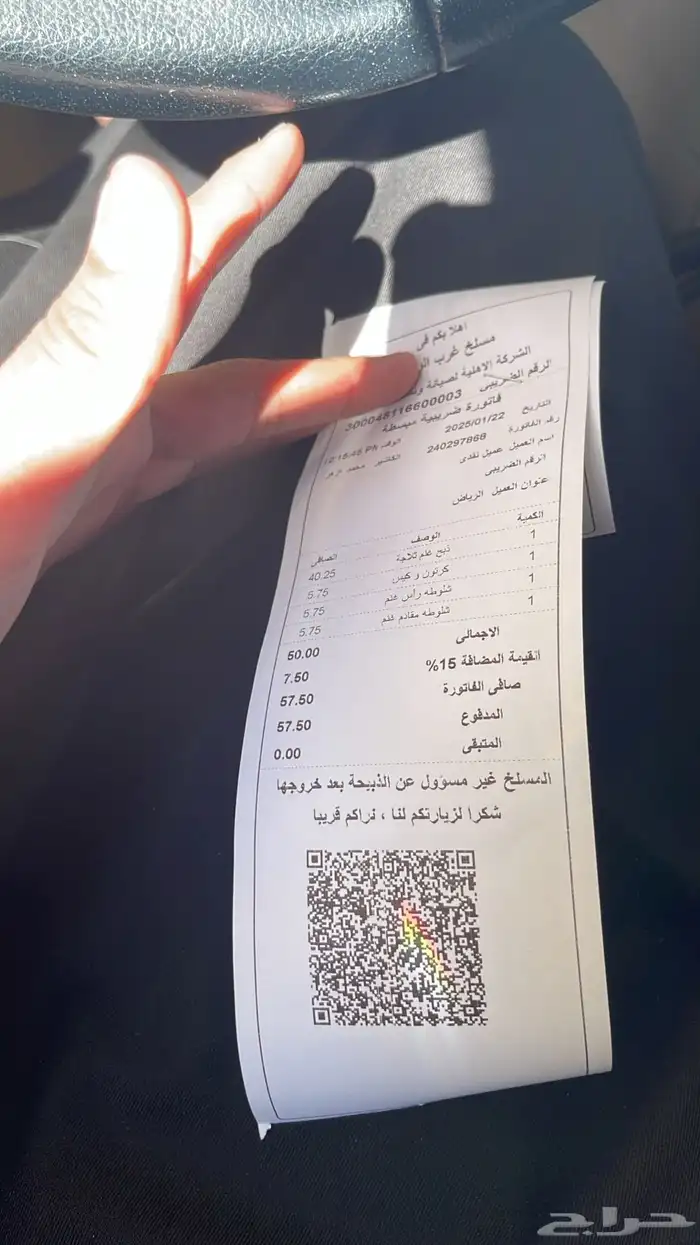 اهلا بكم في
مسلخ غرب
الشركة الاهلية لصيانة
الرقم الضريبى 300048116600003
فاتورة ضريبية مبسطة
التاريخ 2025/01/22
رقم الفاتورة 240297868
اسم العميل عميل نقدى الكاشير محمد
الرقم الضريبى
عنوان العميل الرياض
الكمية الوصف الصافي
1 ذبح غنم ثلاجة 40.25
1 كرتون و كيس 5.75
1 شلوطه رأس غنم 5.75
1 شلوطه مقادم غنم 5.75
الاجمالى 50.00
القيمة المضافة 15% 7.50
صافى الفاتورة 57.50
المدفوع 57.50
المتبقى 0.00
المسلخ غير مسؤول عن الذبيحة بعد خروجها
شكرا لزيارتكم لنا ، نراكم قريبا
حراج